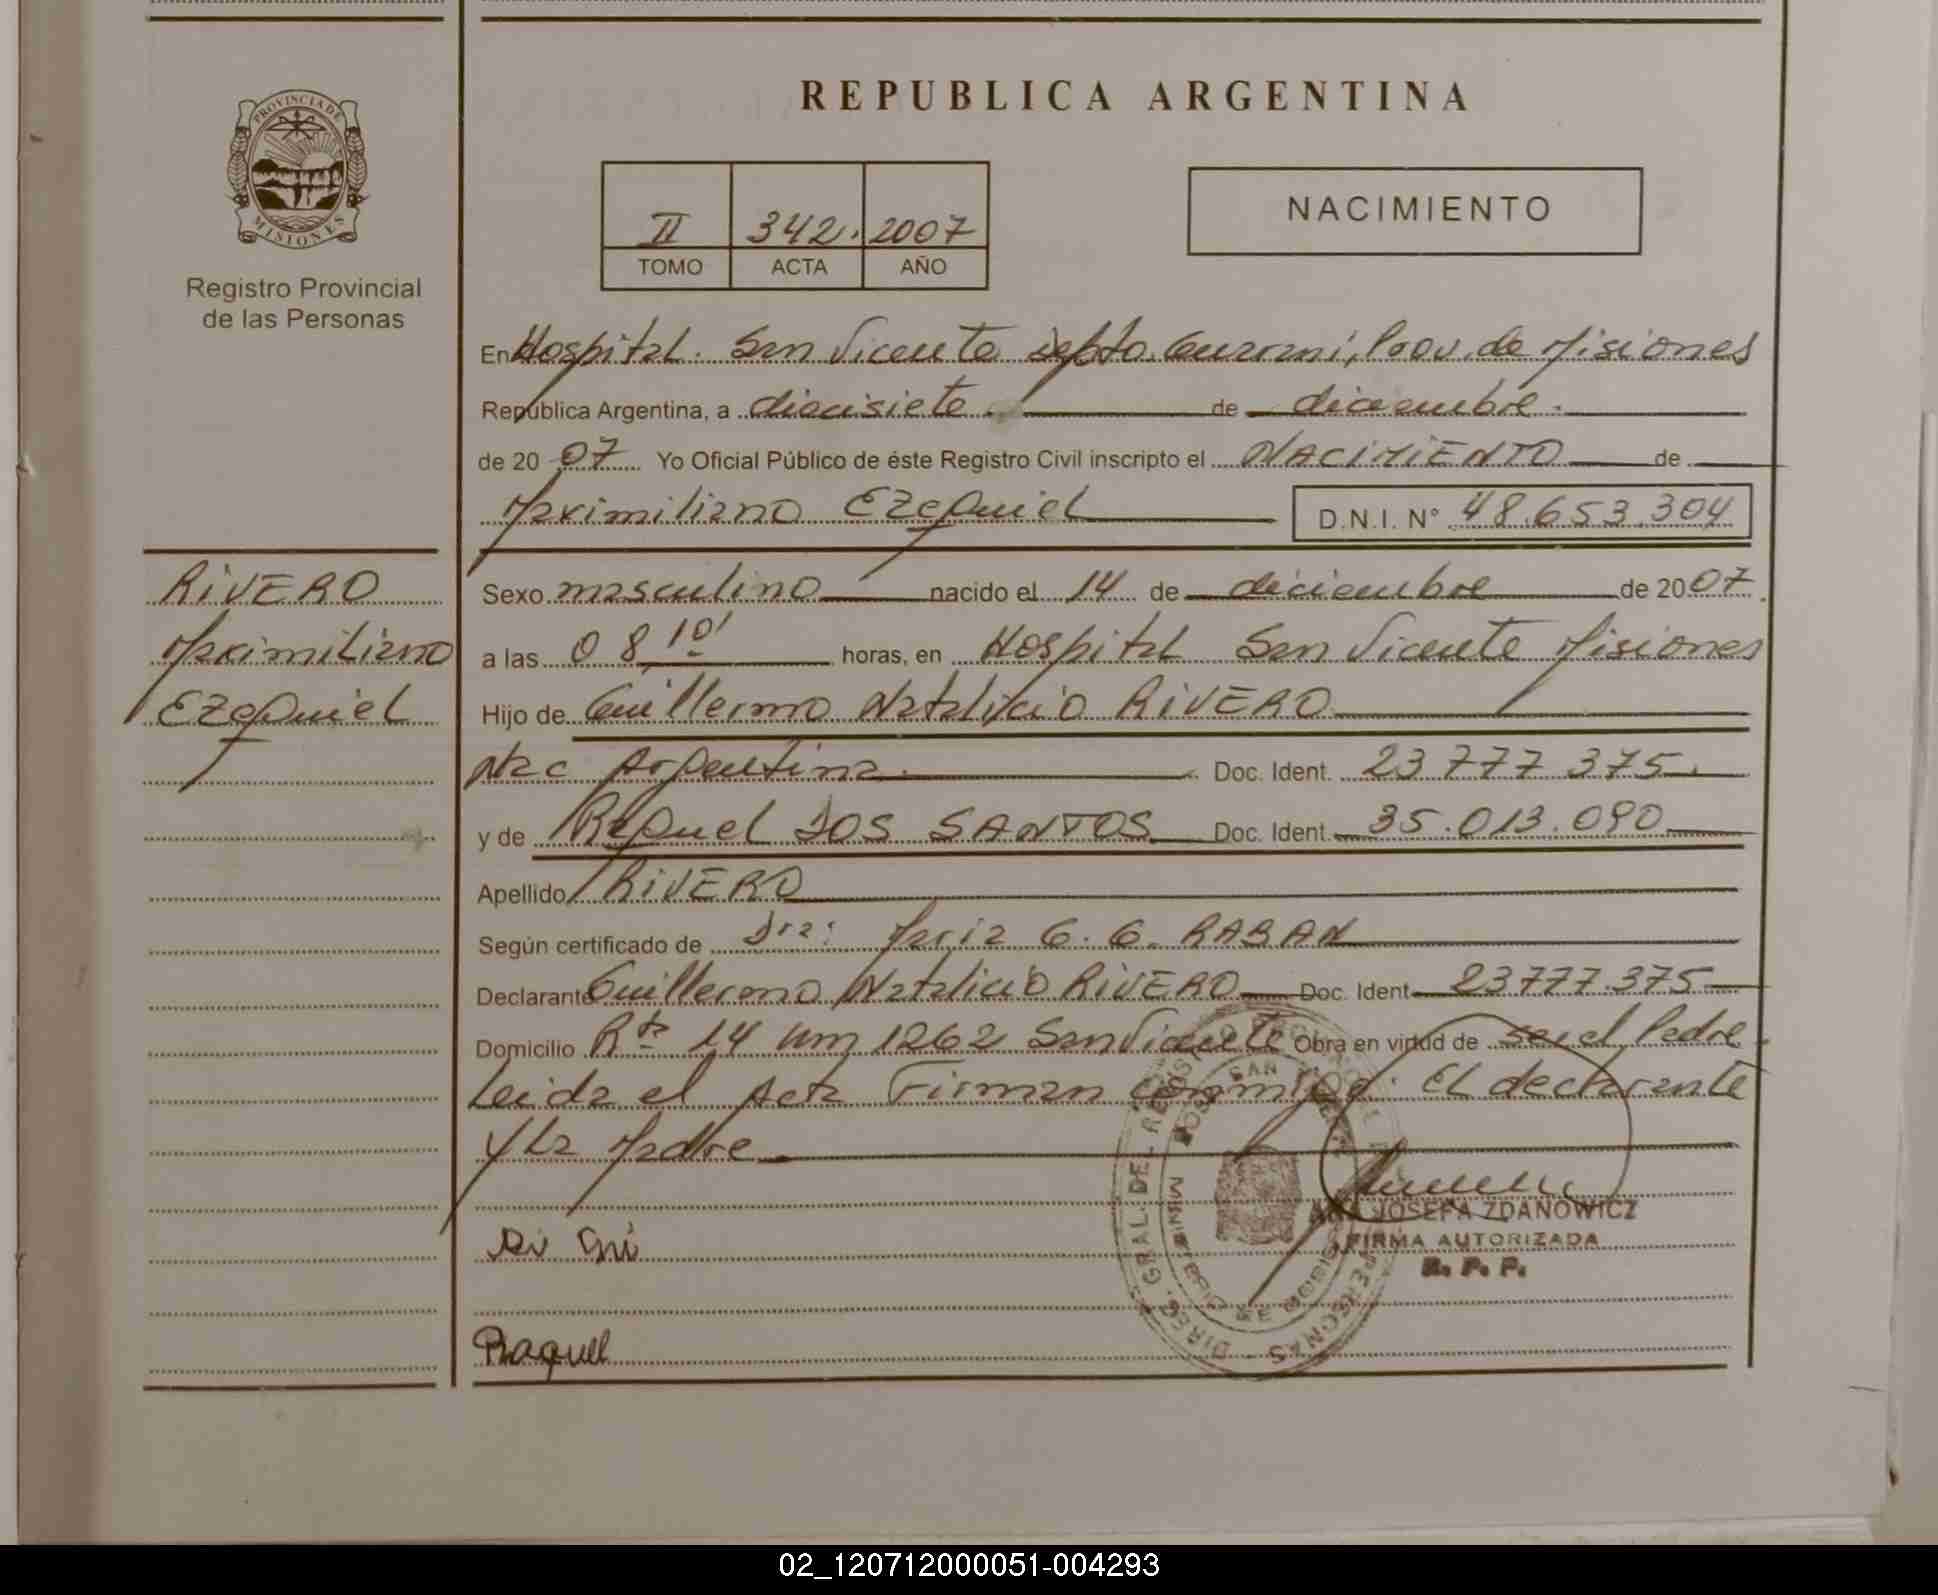 REPUBLICA ARGENTINA
PROVINCIA DE
MISIONES
Registro Provincial
de las Personas
II 342. 2007
TOMO ACTA AÑO
NACIMIENTO
En Hospital. San Vicente depto. Guarani, Prov. de Misiones
República Argentina, a diecisiete de diciembre.
de 20 07 Yo Oficial Público de éste Registro Civil inscripto el NACIMIENTO de
Maximiliano EZequiel D.N.I. N° 48.653.304
RIVERO
Maximiliano
EZequiel
Sexo masculino nacido el 14 de diciembre de 20 07.
a las 08,10' horas, en Hospital San Vicente Misiones
Hijo de Guillermo Natalicio RIVERO
Nac Argentina. Doc. Ident. 23 777 375.
y de Raquel DOS SANTOS Doc. Ident. 35.013.090
Apellido RIVERO
Según certificado de Dra: Maria G. G. RABAN
Declarante Guillermo Natalicio RIVERO Doc. Ident 23777.375
Domicilio Rta 14 Km 1262 San Vicente Obra en virtud de ser el Padre
Leida el Acta Firman conmigo. El declarante
y La Madre
ANA JOSEFA ZDANOWICZ
FIRMA AUTORIZADA
R. P. P.
Raquel
02_120712000051-004293